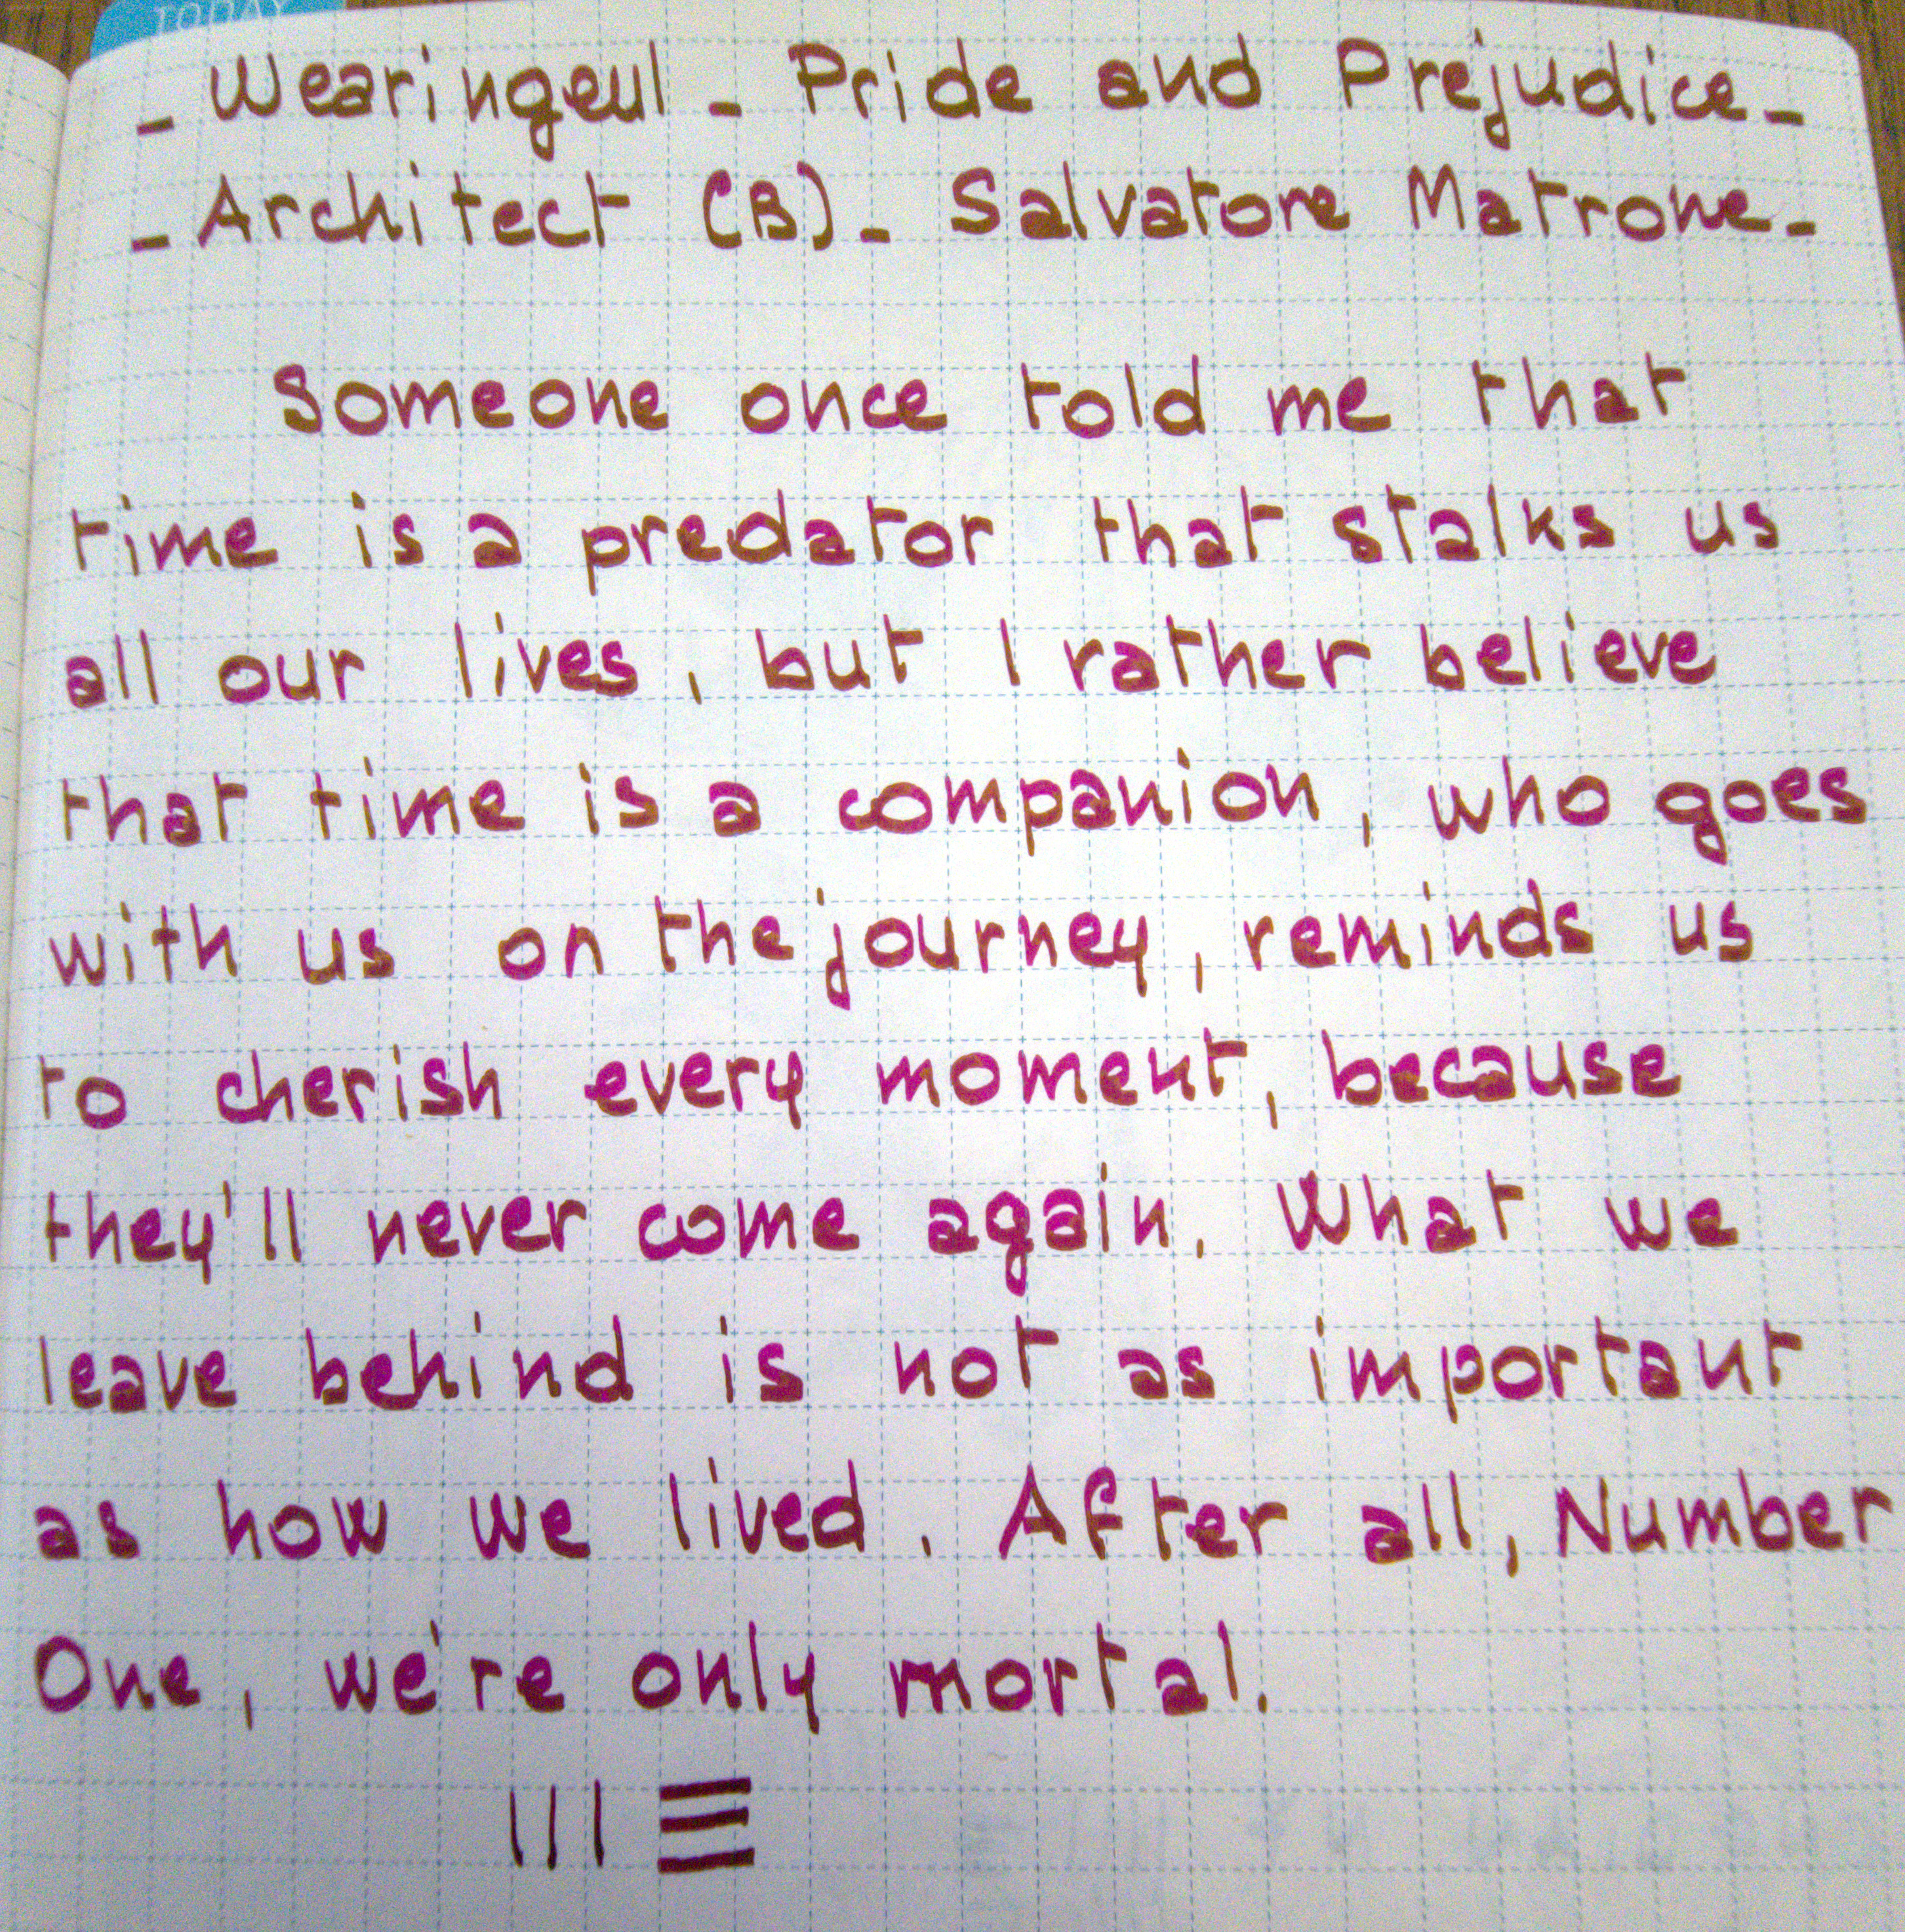 TODAY
- Wearingeul - Pride and Prejudice -
- Architect (B) - Salvatore Matrone -
Someone once told me that
time is a predator that stalks us
all our lives, but I rather believe
that time is a companion, who goes
with us on the journey, reminds us
to cherish every moment, because
they'll never come again. What we
leave behind is not as important
as how we lived. After all, Number
One, we're only mortal.